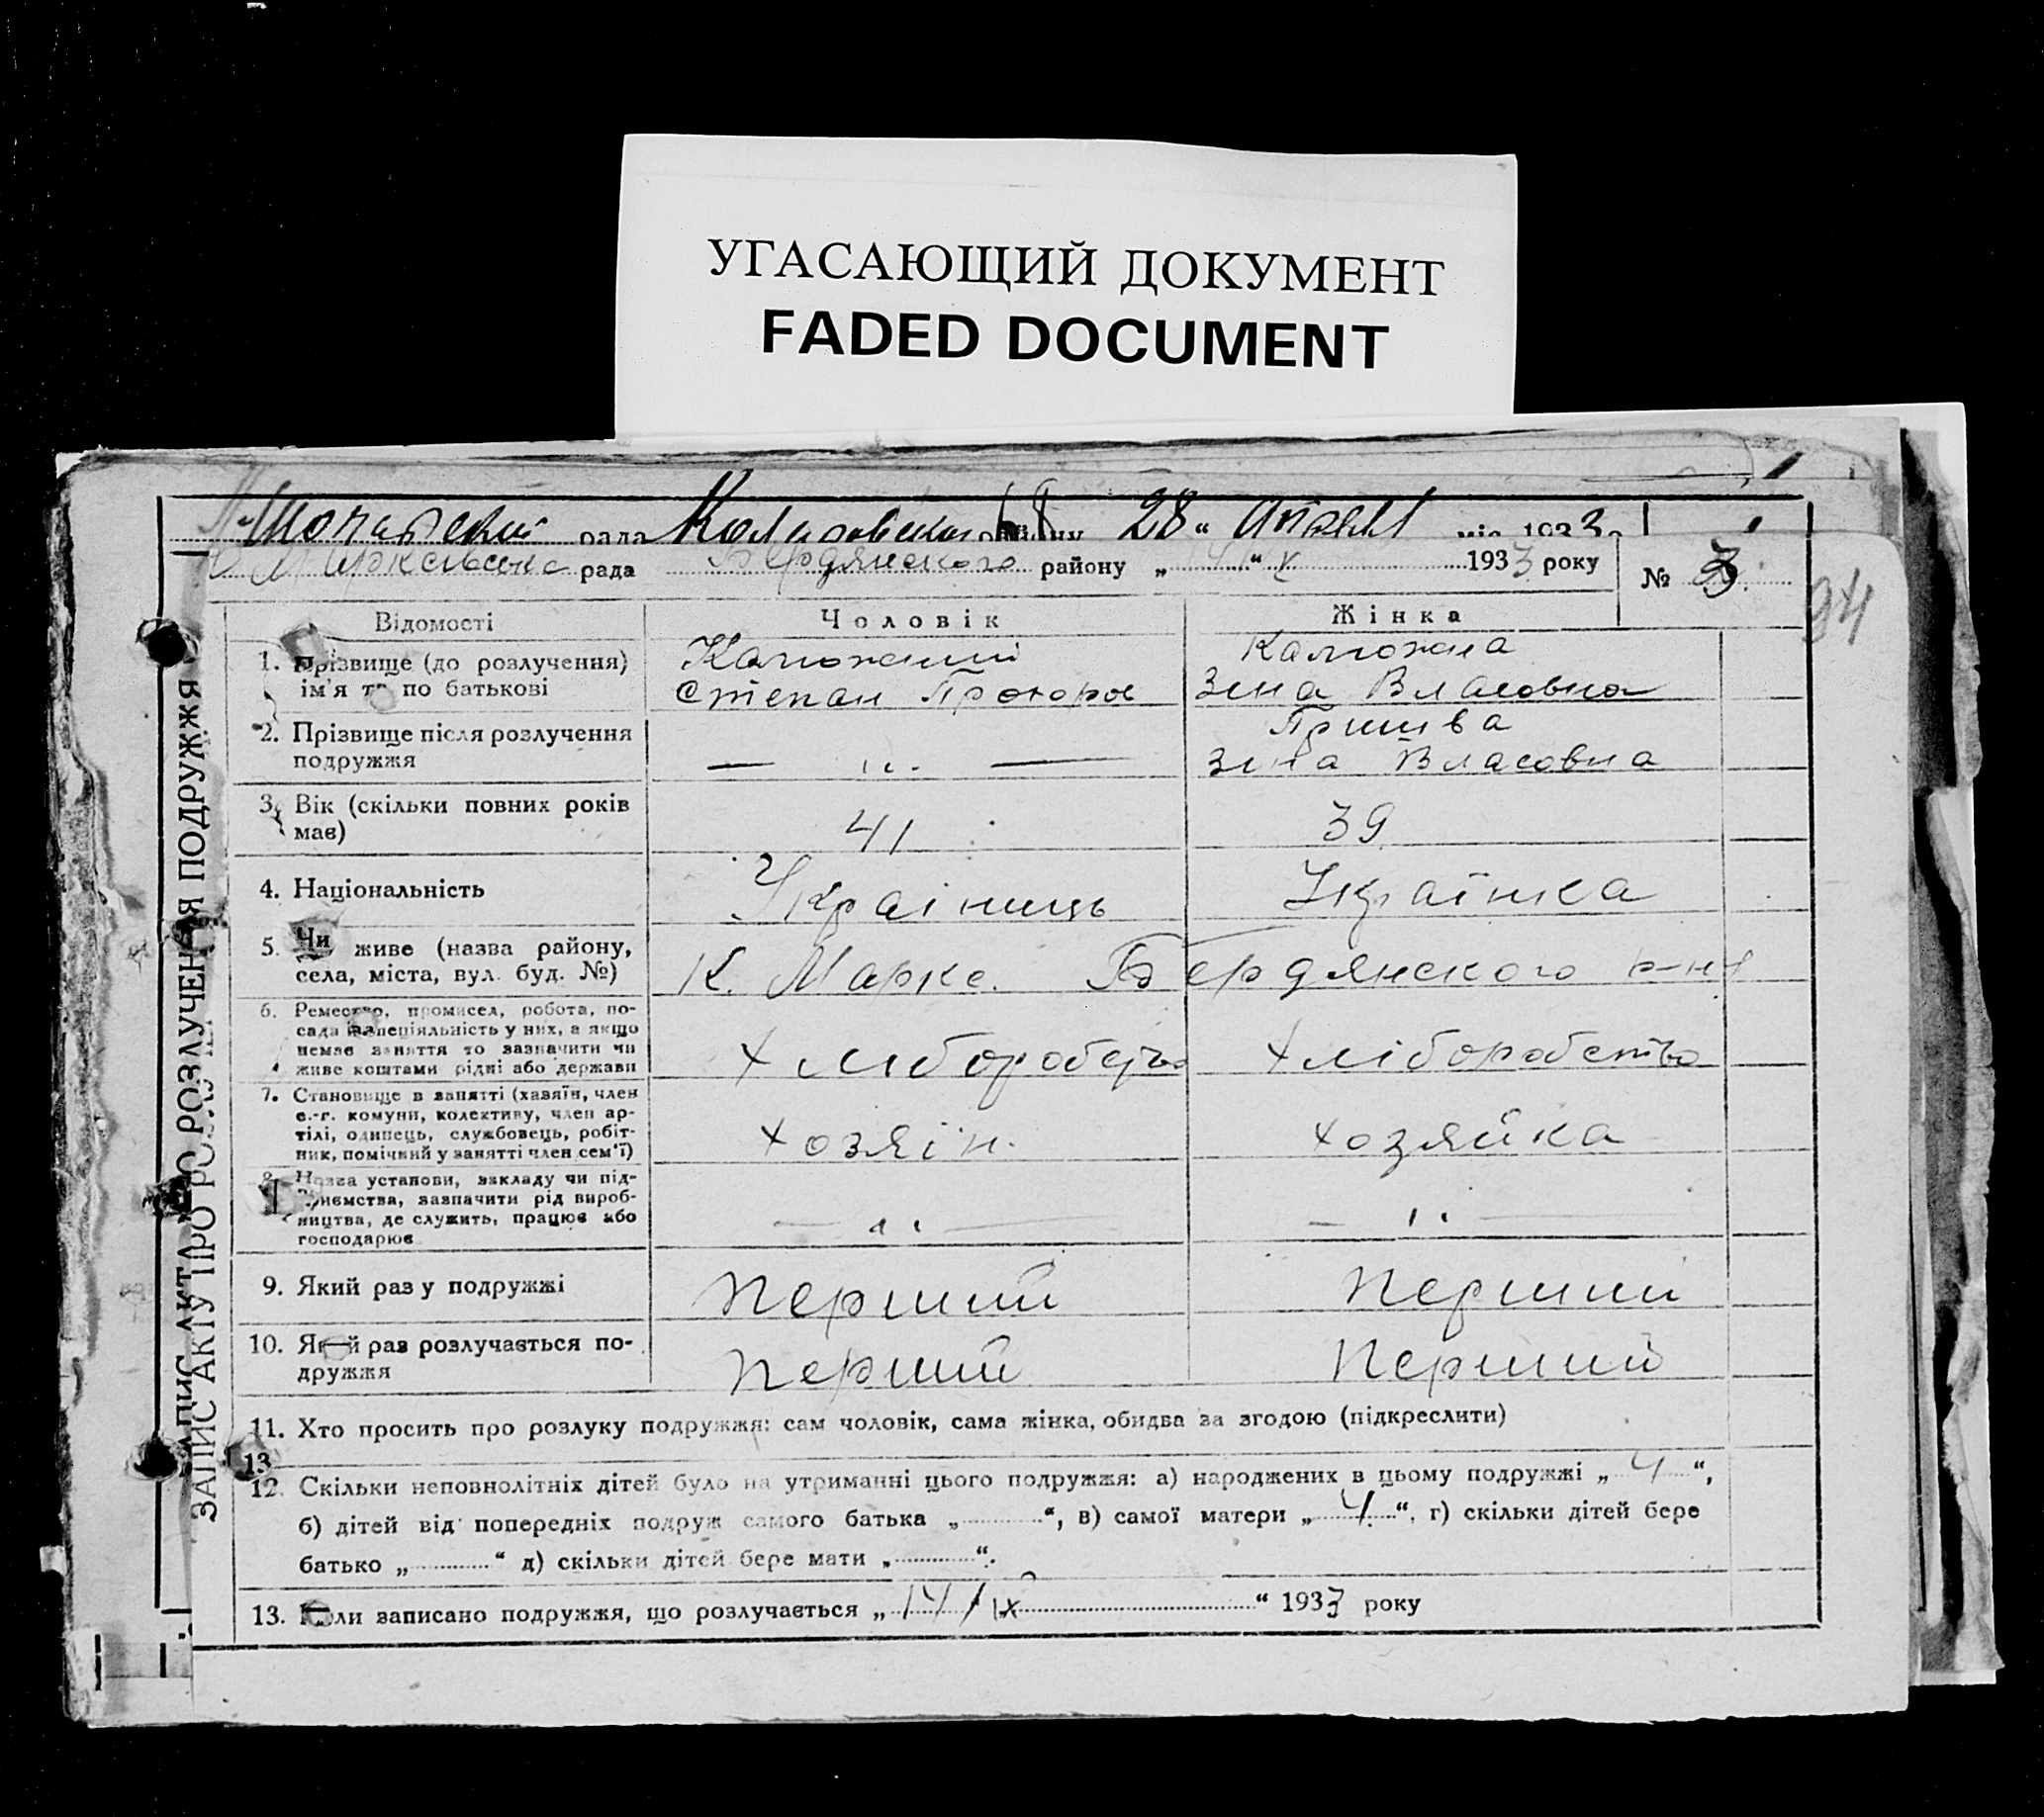 УГАСАЮЩИЙ ДОКУМЕНТ
FADED DOCUMENT
рада району 28 “ міс 1933
рада Бердянского району „ “ X 1933 року № 3.
94
ЗАПИС АКТУ ПРО РОЗЛУЧЕННЯ ПОДРУЖЖЯ
Відомості Чоловік Жінка
1. Прізвище (до розлучення) ім'я та по батькові
Степан Прохоров
Зина Власовна
2. Прізвище після розлучення подружжя
— „ —
Зина Власовна
3. Вік (скільки повних років має)
41 39
4. Національність
Українць Українка
5. Чи живе (назва району, села, міста, вул. буд. №)
К. Маркс. Бердянского р-ну
6. Ремество, промисел, робота, посада і спеціяльність у них, а якщо немає заняття то зазначити чи живе коштами рідні або держави
Хліборобство
7. Становище в занятті (хазяїн, член с.-г. комуни, колективу, член артілі, одинець, службовець, робітник, помічний у занятті член сем'ї)
хозяїн. хозяйка
8. Назва установи, закладу чи підприємства, зазначити рід виробництва, де служить, працює або господарює
— „ — — „ —
9. Який раз у подружжі
Перший Перший
10. Який раз розлучається подружжя
Перший Перший
11. Хто просить про розлуку подружжя: сам чоловік, сама жінка, обидва за згодою (підкреслити)
13
12. Скільки неповнолітніх дітей було на утриманні цього подружжя: а) народжених в цьому подружжі „ 4 “,
б) дітей від попередніх подруж самого батька „ “, в) самої матери „ 4. “. г) скільки дітей бере
батько „ “ д) скільки дітей бере мати „ “.
13. Коли записано подружжя, що розлучається „ 14 / IX “ 1933 року